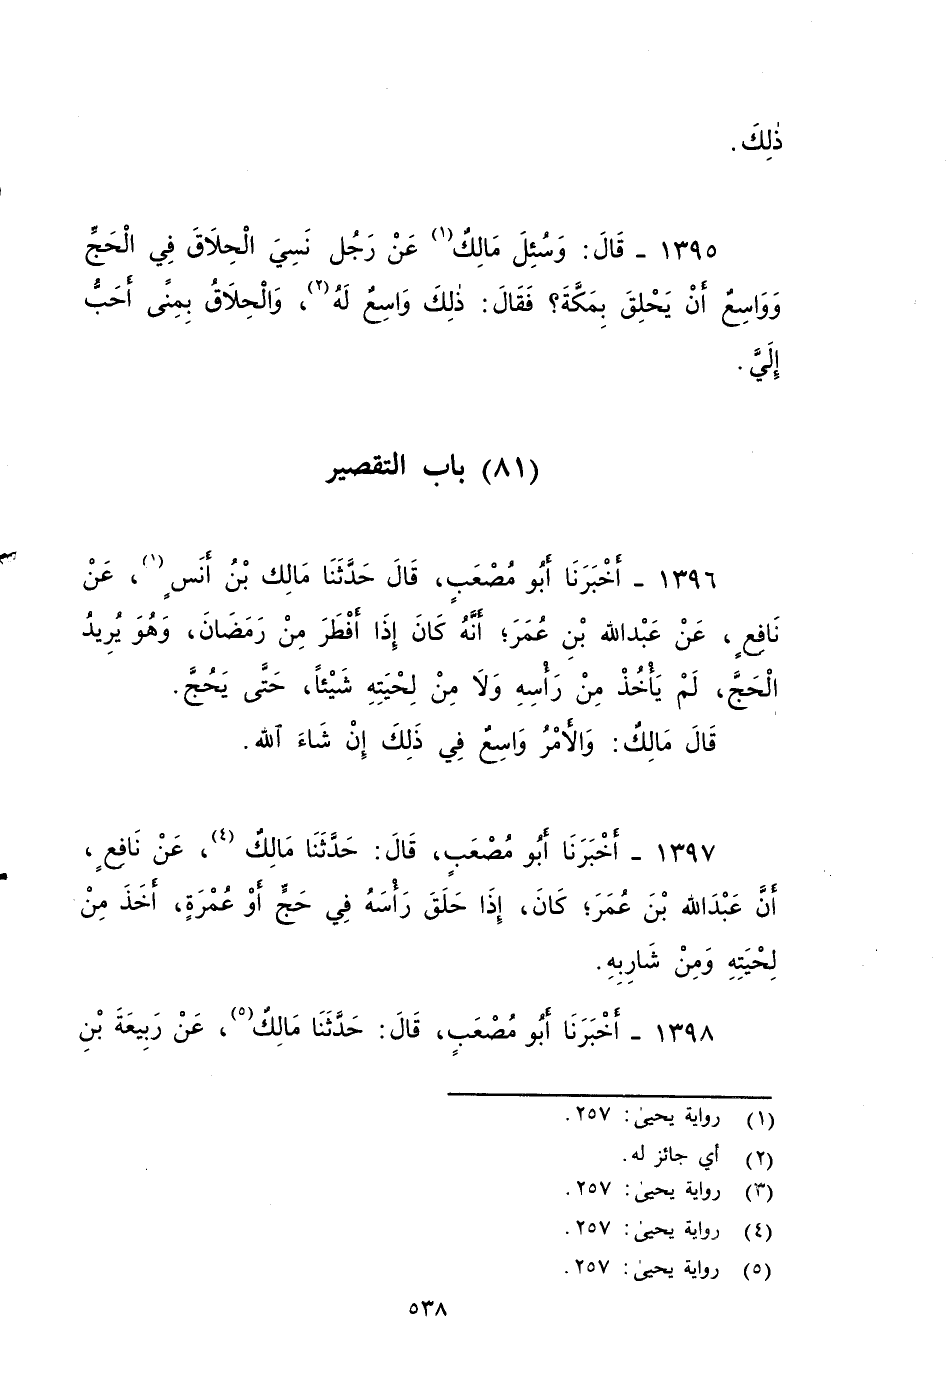 ذٰلِكَ.
١٣٩٥ ـ قَالَ: وَسُئِلَ مَالِكٌ(١) عَنْ رَجُلٍ نَسِيَ الْحِلَاقَ فِي الْحَجِّ
وَوَاسِعٌ أَنْ يَحْلِقَ بِمَكَّةَ؟ فَقَالَ: ذٰلِكَ وَاسِعٌ لَهُ(٢)، وَالْحِلَاقُ بِمِنًى أَحَبُّ
إِلَيَّ.
(٨١) باب التقصير
١٣٩٦ ـ أَخْبَرَنَا أَبُو مُصْعَبٍ، قَالَ حَدَّثَنَا مَالِك بْنُ أَنَسٍ(١)، عَنْ
نَافِعٍ، عَنْ عَبْدالله بْنِ عُمَرَ؛ أَنَّهُ كَانَ إِذَا أَفْطَرَ مِنْ رَمَضَانَ، وَهُوَ يُرِيدُ
الْحَجَّ، لَمْ يَأْخُذْ مِنْ رَأْسِهِ وَلَا مِنْ لِحْيَتِهِ شَيْئاً، حَتَّى يَحُجَّ.
قَالَ مَالِكٌ: وَالأَمْرُ وَاسِعٌ فِي ذَلِكَ إِنْ شَاءَ ٱلله.
١٣٩٧ ـ أَخْبَرَنَا أَبُو مُصْعَبٍ، قَالَ: حَدَّثَنَا مَالِكٌ(٤)، عَنْ نَافِعٍ،
أَنَّ عَبْدَالله بْنَ عُمَرَ؛ كَانَ، إِذَا حَلَقَ رَأْسَهُ فِي حَجٍّ أَوْ عُمْرَةٍ، أَخَذَ مِنْ
لِحْيَتِهِ وَمِنْ شَارِبِهِ.
١٣٩٨ ـ أَخْبَرَنَا أَبُو مُصْعَبٍ، قَالَ: حَدَّثَنَا مَالِكٌ(٥)، عَنْ رَبِيعَةَ بْنِ
(١) رواية يحيىٰ: ٢٥٧.
(٢) أي جائز له.
(٣) رواية يحيىٰ: ٢٥٧.
(٤) رواية يحيىٰ: ٢٥٧.
(٥) رواية يحيىٰ: ٢٥٧.
٥٣٨